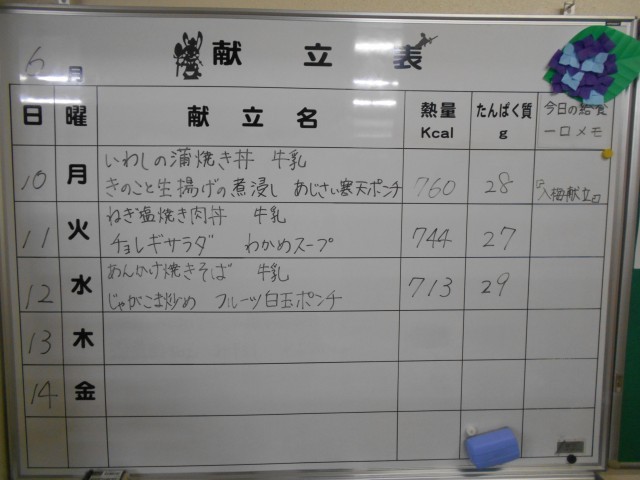 献立表
6月
日 曜 献立名 熱量 Kcal たんぱく質 g 今日の給食 一口メモ
10 月 いわしの蒲焼き丼 牛乳
きのこと生揚げの煮浸し あじさい寒天ポンチ 760 28 『入梅献立』
11 火 ねぎ塩焼き肉丼 牛乳
チョレギサラダ わかめスープ 744 27
12 水 あんかけ焼きそば 牛乳
じゃがごま炒め フルーツ白玉ポンチ 713 29
13 木
14 金